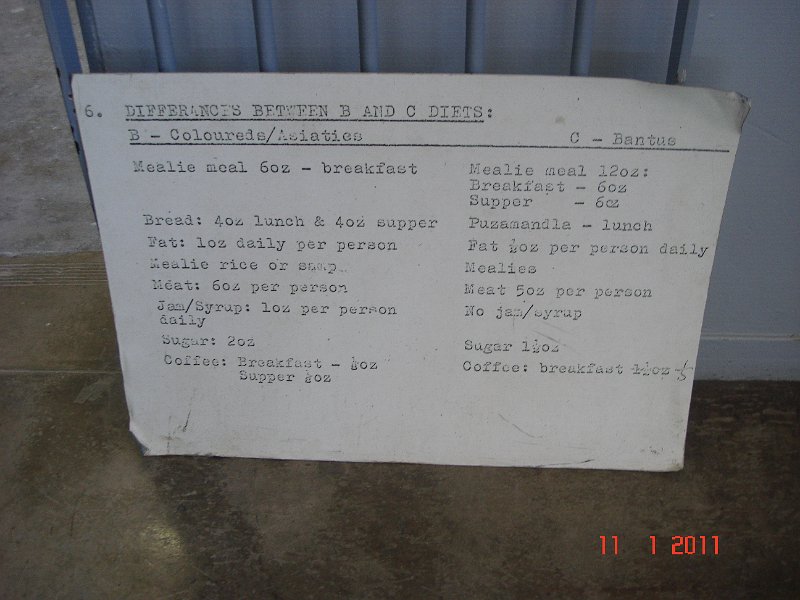 6. DIFFERANCES BETWEEN B AND C DIETS:
B - Coloureds/Asiatics C - Bantus
Mealie meal 6oz - breakfast Mealie meal 12oz:
Breakfast - 6oz
Supper - 6oz
Bread: 4oz lunch & 4oz supper Puzamandla - lunch
Fat: 1oz daily per person Fat ½oz per person daily
Mealie rice or samp Mealies
Meat: 6oz per person Meat 5oz per person
Jam/Syrup: 1oz per person No jam/syrup
daily
Sugar: 2oz Sugar 1½oz
Coffee: Breakfast - oz Coffee: breakfast
Supper oz
11 1 2011